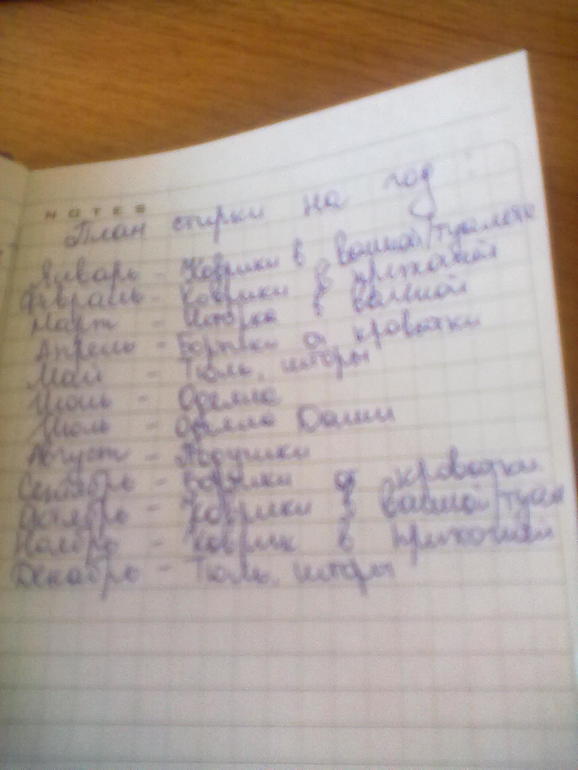 NOTES
План стирки на год:
Январь - Коврики в ванной/туалете
Февраль - Коврики в прихожей
Март - Шторка в ванной
Апрель - Бортики д кроватки
Май - Тюль, шторы
Июнь - Одеяло
Июль - Одеяло Даши
Август - Подушки
Сентябрь - Бортики д кроватки
Октябрь - Коврики в ванной/туал
Ноябрь - Коврик в прихожей
Декабрь - Тюль, шторы